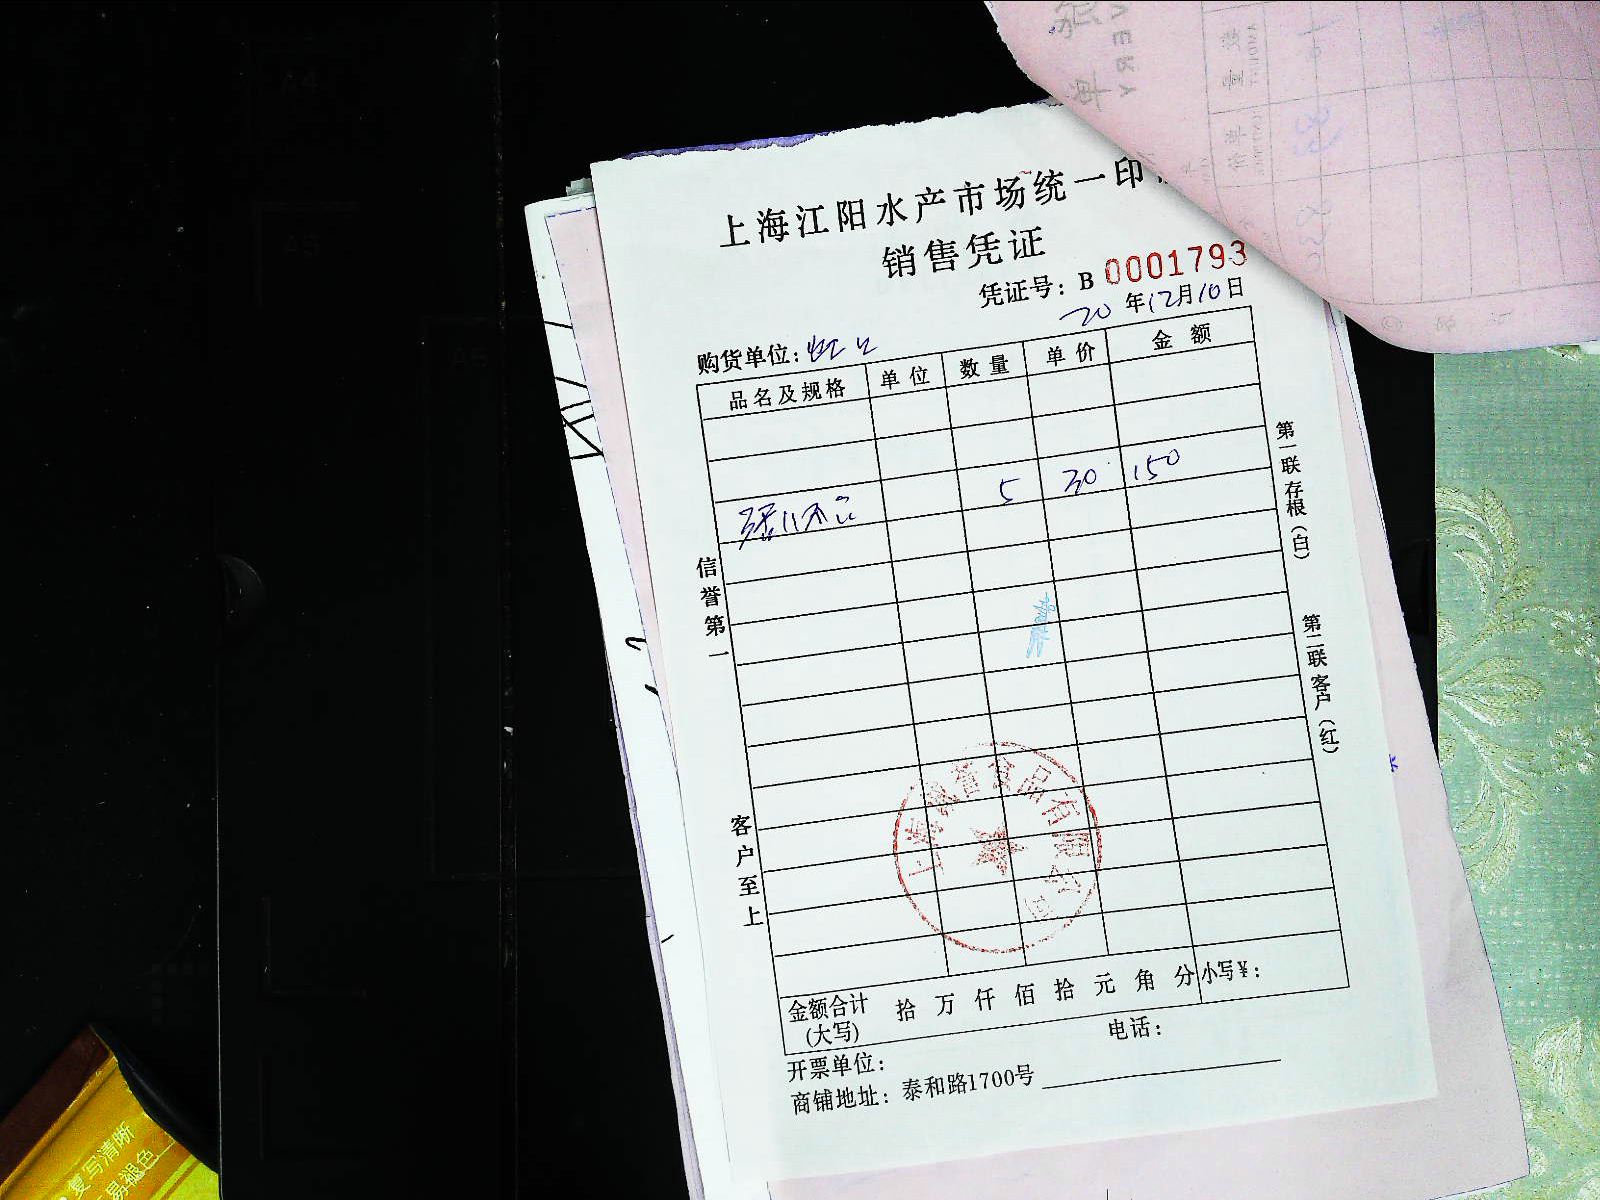 上海江阳水产市场统一印
销售凭证
凭证号：B 0001793
20 年12月10日
购货单位：虹口
品名及规格 单位 数量 单价 金额
5 30 150
信誉第一
客户至上
第一联存根（白）
第二联客户（红）
食品有限公司
金额合计(大写) 拾 万 仟 佰 拾 元 角 分 小写¥：
开票单位： 电话：
商铺地址：泰和路1700号
复写清晰
易褪色